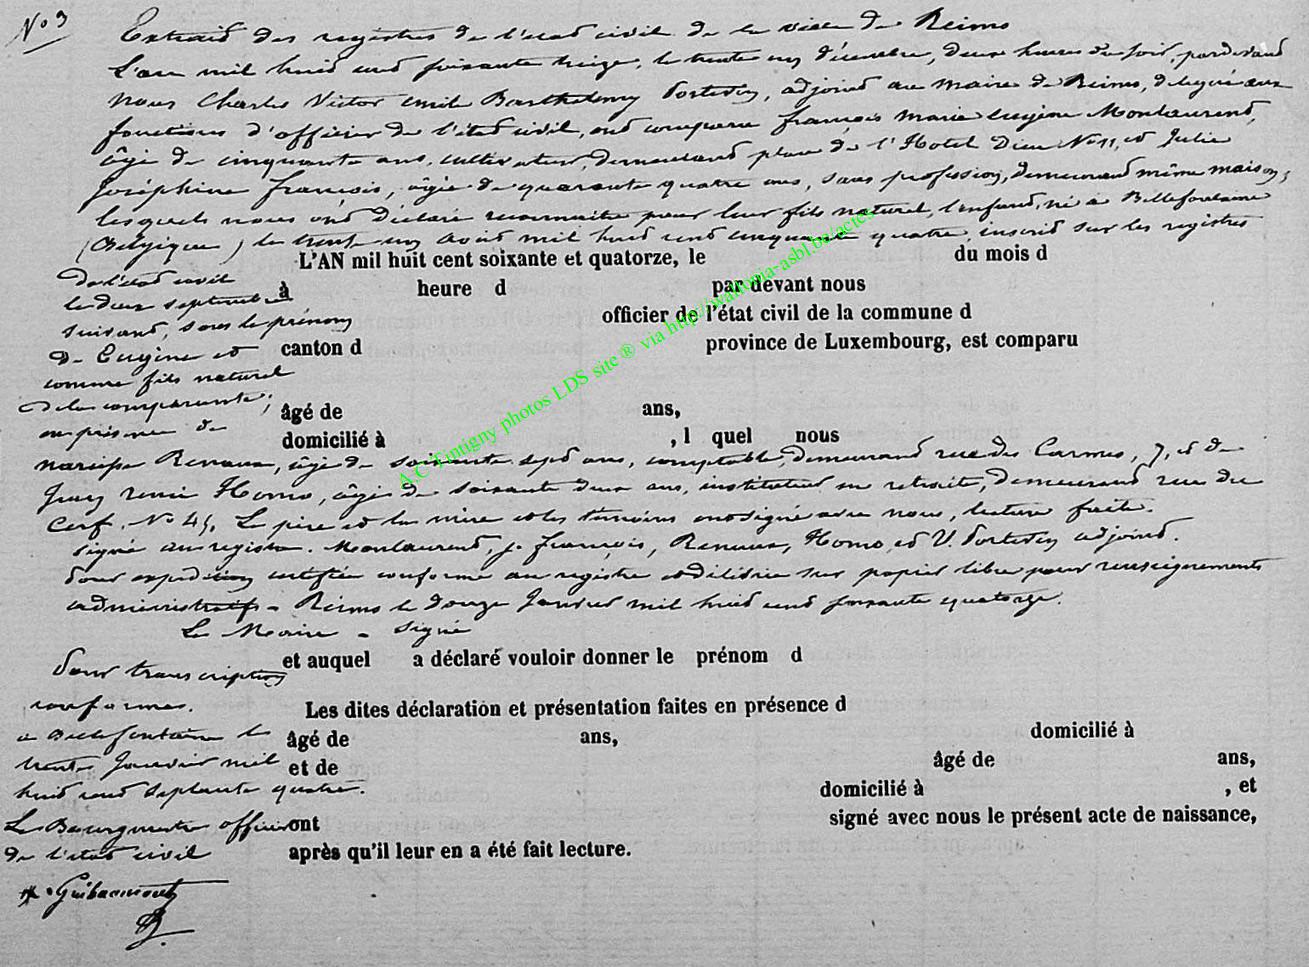 N° 3
Extrait des registres de l'état civil de la ville de Reims
L'an mil huit cent soixante treize, le trente un décembre, deux heures du soir, pardevant
nous Charles Victor Emile Barthelemy Portevin, adjoint au maire de Reims, délégué aux
fonctions d'officier de l'état civil, ont comparu François Marie Eugène Montaurent,
âgé de cinquante ans, cultivateur, demeurant place de l'Hotel Dieu N° 11, et Julie
Joséphine François, âgée de quarante quatre ans, sans profession, demeurant même maison,
lesquels nous ont déclaré reconnaitre pour leur fils naturel, l'enfant, né à Bellefontaine
(Belgique) le trente un Août mil huit cent cinquante quatre, inscrit sur les registres
de l'état civil
le deux septembre
suivant, sous le prénom
de Eugène et
comme fils naturel
de la comparante ;
en présence de
L'AN mil huit cent soixante et quatorze, le du mois d
à heure d par devant nous
officier de l'état civil de la commune d
canton d province de Luxembourg, est comparu
âgé de ans,
domicilié à , l quel nous
narcisse Renaux, âgé de soixante sept ans, comptable, demeurant rue des Carmes, 7, et de
Remi Homo, âgé de soixante deux ans, instituteur en retraite, demeurant rue du
Cerf, N° 45, Le père et la mère et les témoins ont signé avec nous, lecture faite.
signé au registre. Montaurent, j. françois, Renaux, Homo, et V. Portevin adjoint.
Pour expédition certifiée conforme au registre et délivrée sur papier libre pour renseignements
administratifs - Reims le douze Janvier mil huit cent soixante quatorze.
Le Maire - signé
Pour transcription
conforme.
à Bellefontaine le
trente Janvier mil
huit cent septante quatre.
Le Bourgmestre officier
de l'état civil
et auquel a déclaré vouloir donner le prénom d
Les dites déclaration et présentation faites en présence d
âgé de ans, domicilié à
et de âgé de ans,
domicilié à , et
ont signé avec nous le présent acte de naissance,
après qu'il leur en a été fait lecture.
A.C Tintigny photos LDS site ® via http://wallonia-asbl.be/actes